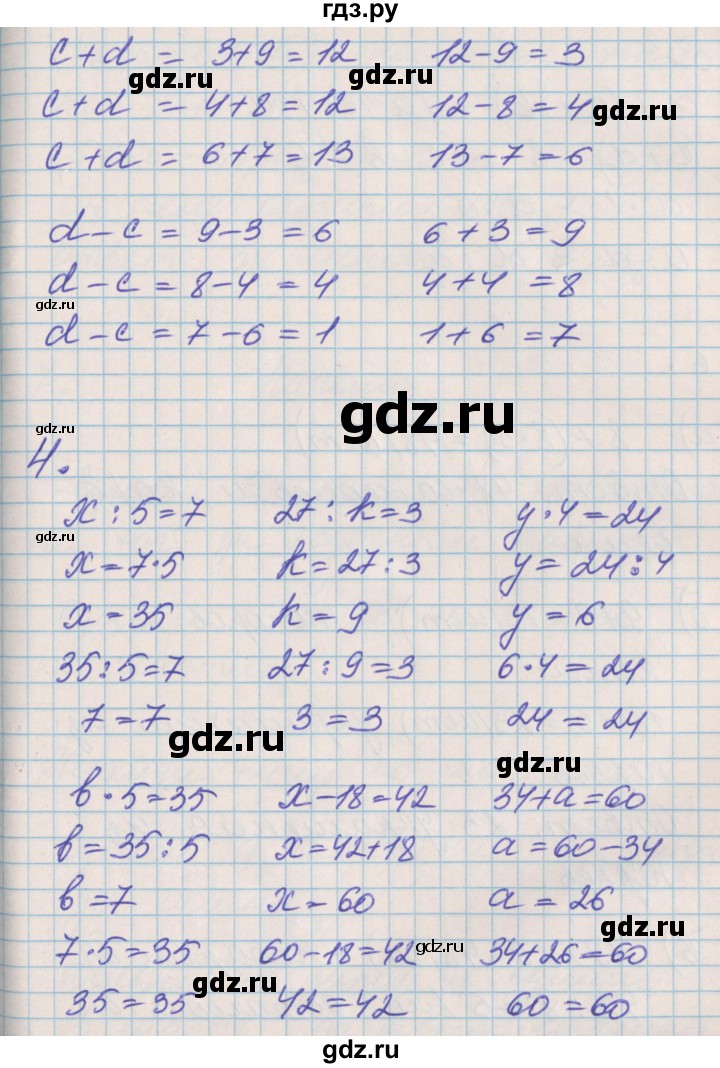 гдз.ру
c + d = 3+9 = 12 12-9 = 3
gdz.ru gdz.ru
c + d = 4+8 = 12 12-8 = 4
gdz.ru
c + d = 6+7 = 13 13-7 = 6
d - c = 9-3 = 6 6 + 3 = 9
d - c = 8-4 = 4 4+4 = 8
gdz.ru
d - c = 7-6 = 1 1+6 = 7
gdz.ru
gdz.ru
4.
x : 5 = 7 27 : k = 3 y · 4 = 24
gdz.ru
x = 7 · 5 k = 27 : 3 y = 24 : 4
x = 35 k = 9 y = 6
35 : 5 = 7 27 : 9 = 3 6 · 4 = 24
7 = 7 3 = 3 24 = 24
gdz.ru
gdz.ru
в · 5 = 35 x - 18 = 42 34 + a = 60
в = 35 : 5 x = 42 + 18 a = 60 - 34
в = 7 x = 60 a = 26
gdz.ru
7 · 5 = 35 60 - 18 = 42 gdz.ru 34 + 26 = 60
gdz.ru
35 = 35 42 = 42 60 = 60
gdz.ru